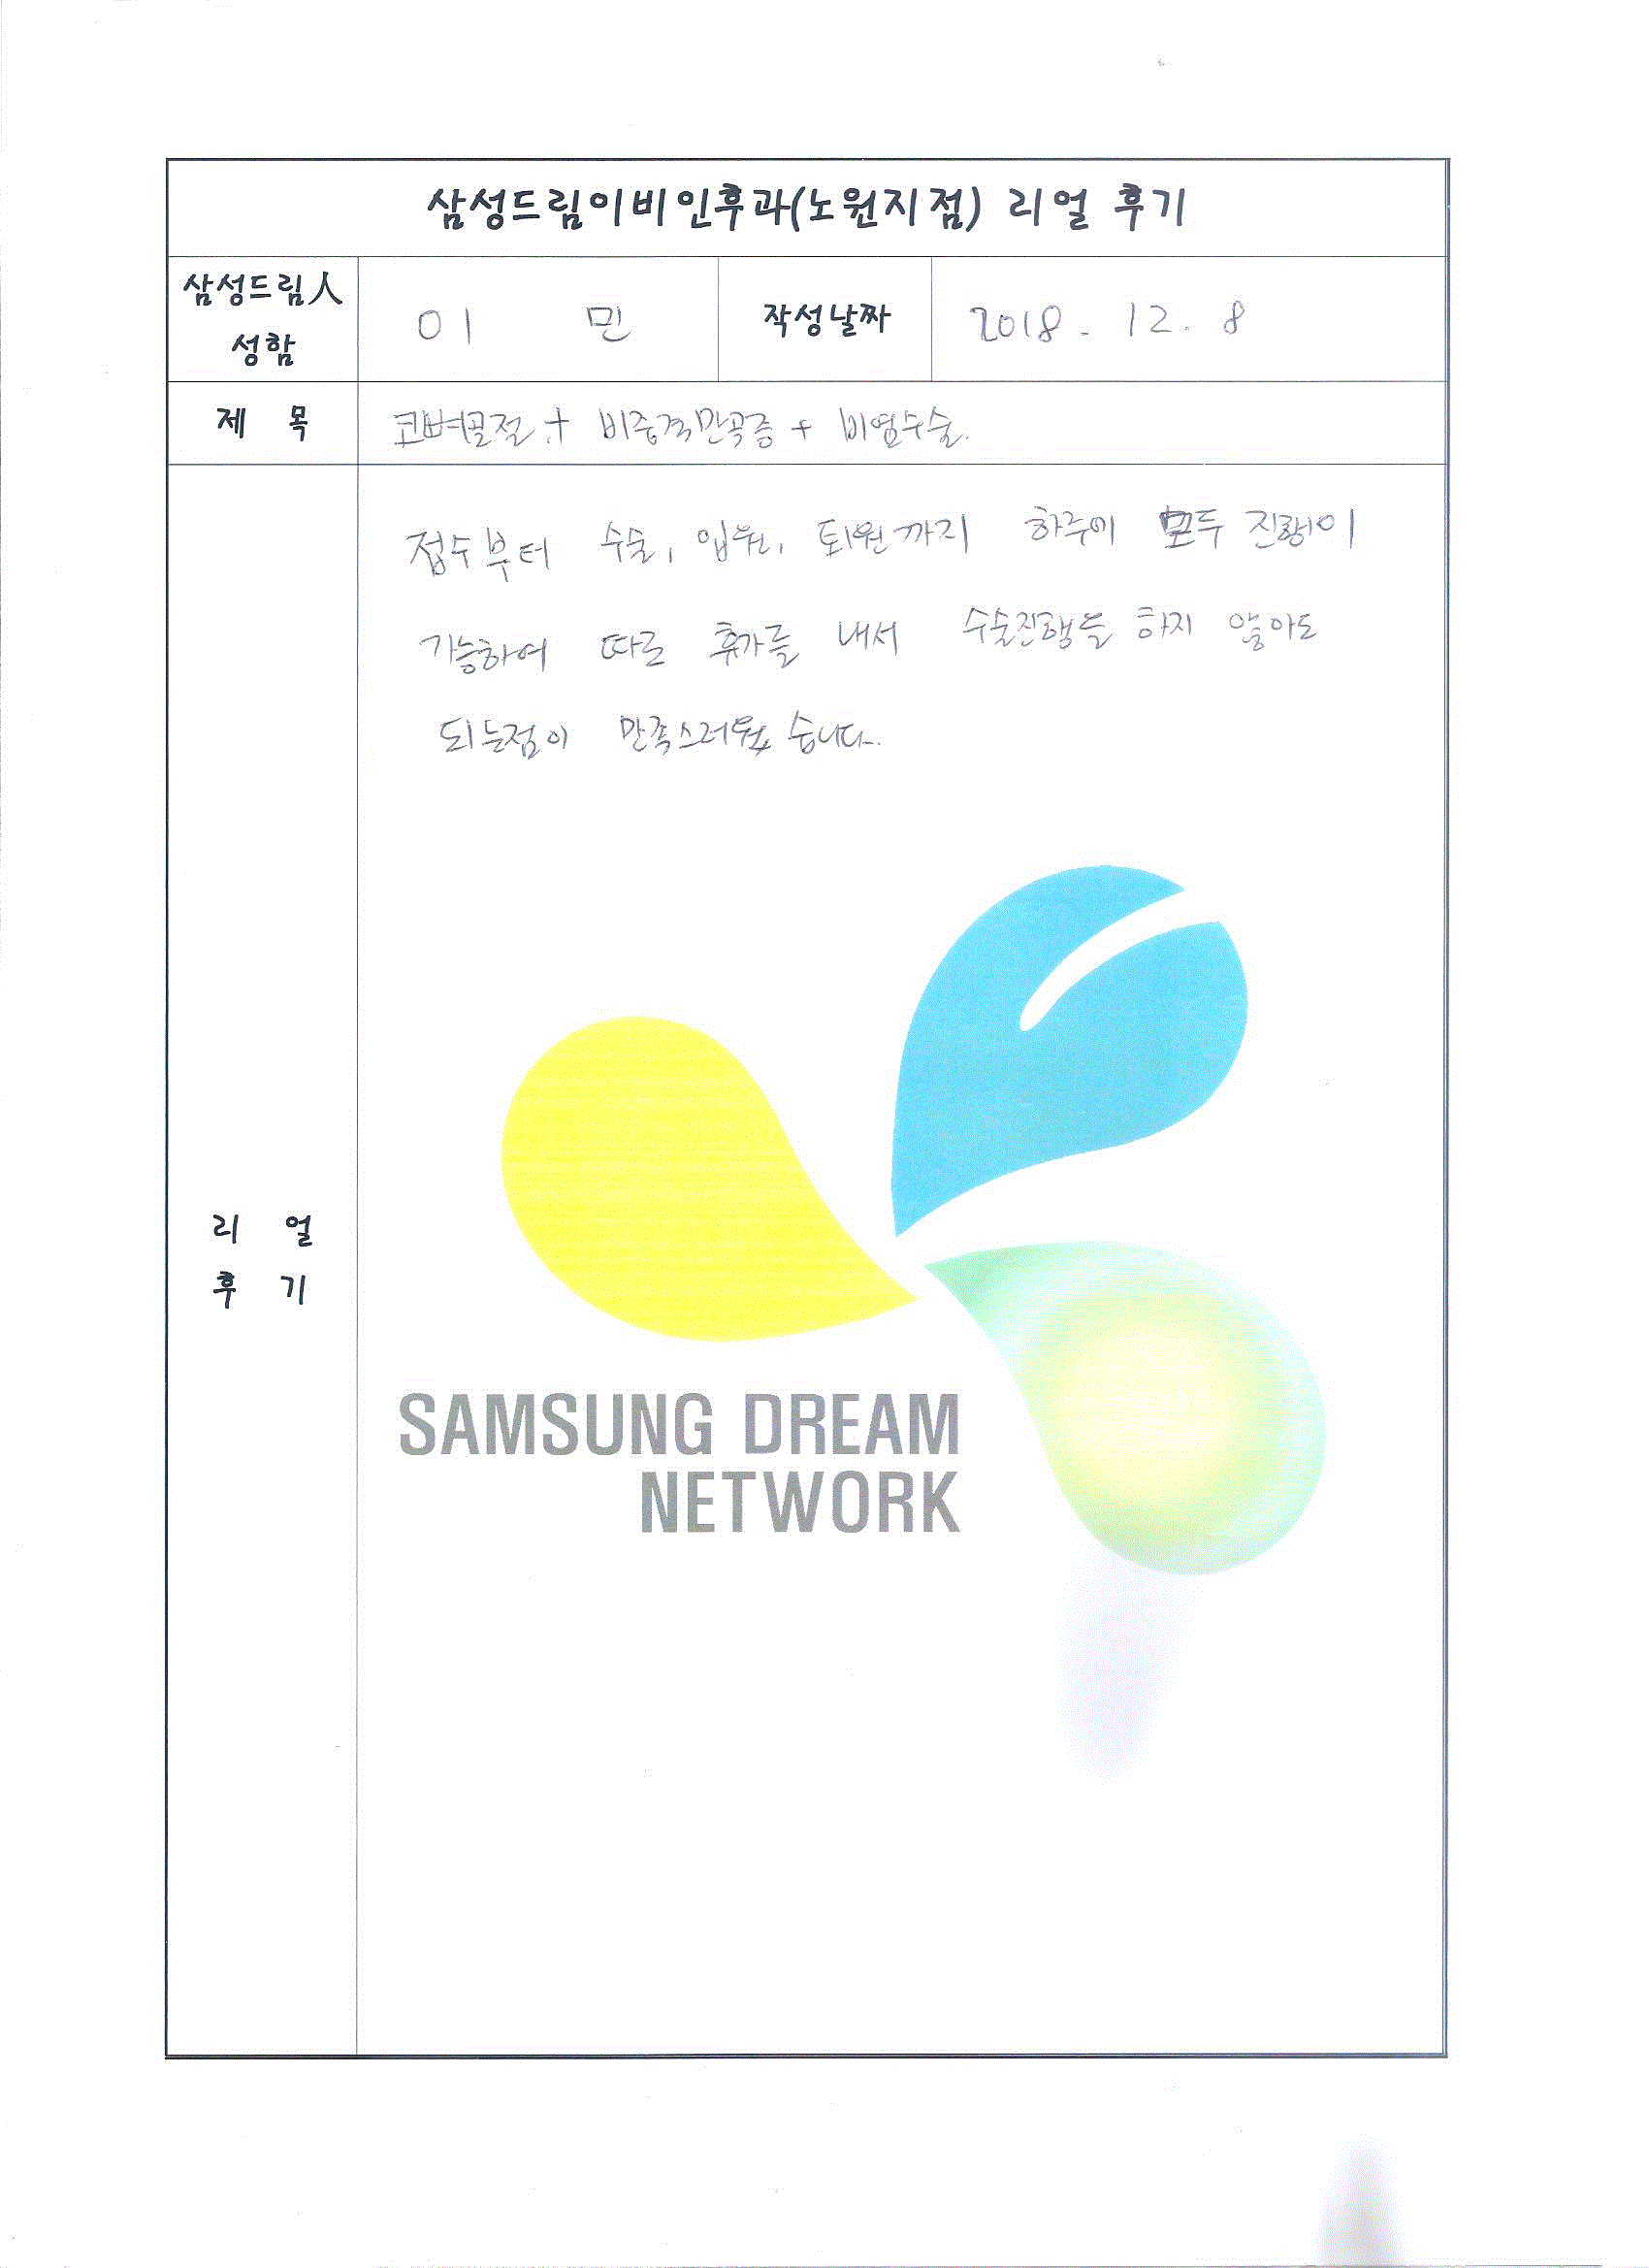 삼성드림이비인후과(노원지점) 리얼 후기
삼성드림人
성함
이 민
작성날짜
2018. 12. 8
제 목
코뼈골절 + 비중격만곡증 + 비염수술.
접수부터 수술, 입원, 퇴원까지 하루에 모두 진행이
가능하여 따로 휴가를 내서 수술진행을 하지 않아도
되는점이 만족스러웠습니다.
리 얼
후 기
SAMSUNG DREAM
NETWORK